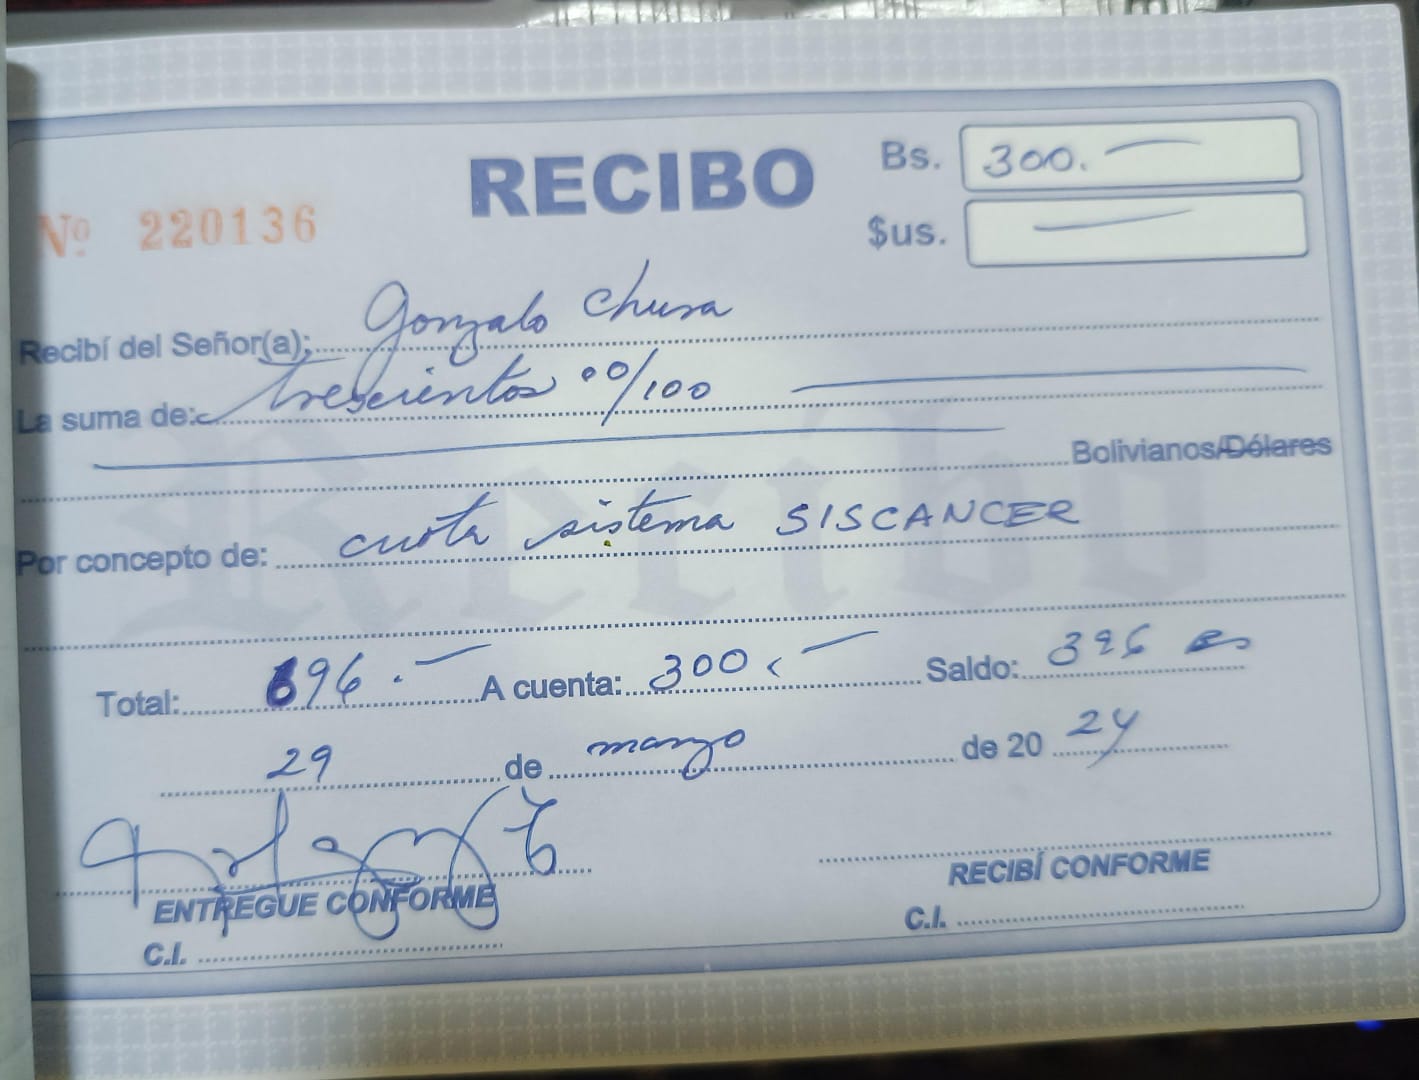 RECIBO
Bs. 300.
Nº 220136
$us.
Recibí del Señor(a): Gonzalo Chura
La suma de: trescientos 00/100
Bolivianos/Dólares
Por concepto de: cuota sistema SISCANCER
Total: 696.- A cuenta: 300.- Saldo: 396 Bs
29 de marzo de 2024
ENTREGUE CONFORME
RECIBÍ CONFORME
C.I.
C.I.